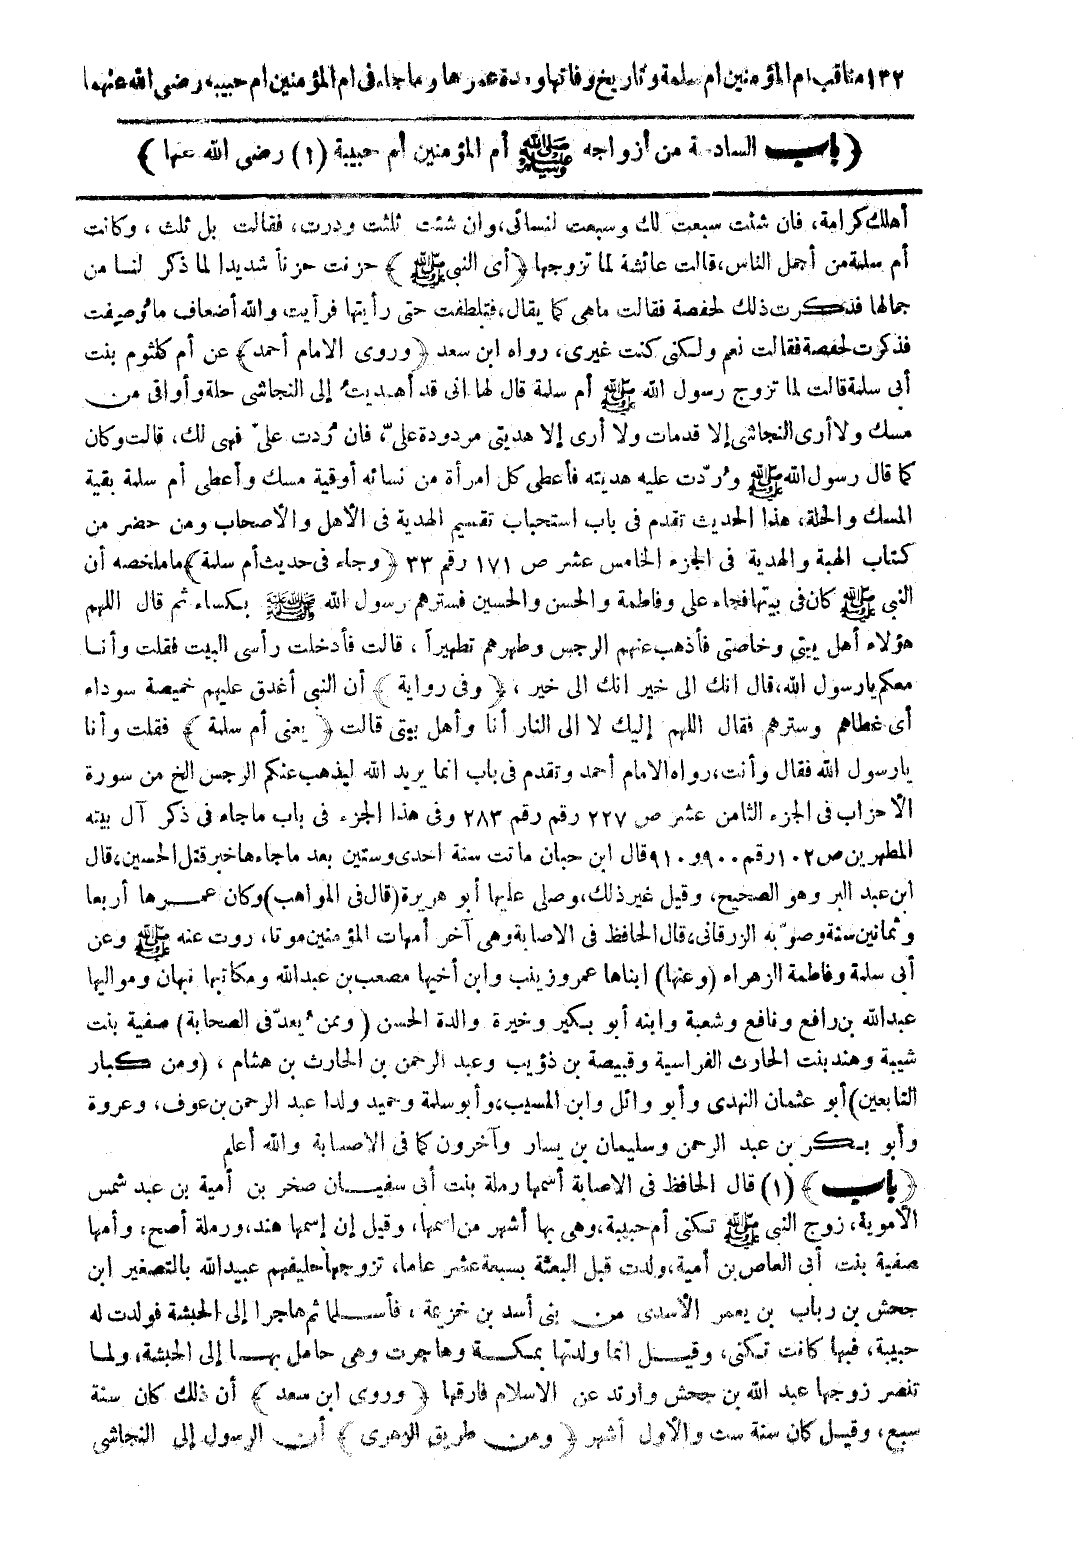 ١٣٢ مناقب أم المؤمنين أم سلمة وتاريخ وفاتها ومدة عمرها وما جاء فى أم المؤمنين أم حبيبة رضى الله عنهما
(باب السادسة من أزواجه ﷺ أم المؤمنين أم حبيبة (١) رضى الله عنها)
أهلك كرامة، فان شئت سبعت لك وسبعت لنسائى، وان شئت ثلثت ودرت، فقالت بل ثلث ، وكانت
أم سلمة من أجمل الناس، قالت عائشة لما تزوجها (أى النبى ﷺ) حزنت حزناً شديدا لما ذكر لنا من
جمالها فذكرت ذلك لحفصة فقالت ماهى كما يقال، فتلطفت حتى رأيتها فرأيت والله أضعاف ما وُصفت
فذكرت لحفصة فقالت نعم ولكنى كنت غيرى، رواه ابن سعد (وروى الامام أحمد) عن أم كلثوم بنت
أبى سلمة قالت لما تزوج رسول الله ﷺ أم سلمة قال لها انى قد أهديت إلى النجاشى حلة وأواقى من
مسك ولا أرى النجاشى إلا قدمات ولا أرى إلا هديتى مردودة علىّ، فان رُدت علىّ فهى لك، قالت وكان
كما قال رسول الله ﷺ ورُدّت عليه هديته فأعطى كل امرأة من نسائه أوقية مسك وأعطى أم سلمة بقية
المسك والحلة، هذا الحديث تقدم فى باب استحباب تقسيم الهدية فى الأهل والأصحاب ومن حضر من
كتاب الهبة والهدية فى الجزء الخامس عشر ص ١٧١ رقم ٣٣ (وجاء فى حديث أم سلمة) ما ملخصه أن
النبى ﷺ كان فى بيتها فجاء على وفاطمة والحسن والحسين فسترهم رسول الله ﷺ بكساء ثم قال اللهم
هؤلاء أهل بيتى وخاصتى فأذهب عنهم الرجس وطهرهم تطهيراً ، قالت فأدخلت رأسى البيت فقلت وأنا
معكم يارسول الله، قال انك الى خير انك الى خير ، (وفى رواية) أن النبى أغدق عليهم خميصة سوداء
أى غطاهم وسترهم فقال اللهم إليك لا الى النار أنا وأهل بيتى قالت (يعنى أم سلمة) فقلت وأنا
يارسول الله فقال وأنت، رواه الامام أحمد وتقدم فى باب انما يريد الله ليذهب عنكم الرجس الخ من سورة
الأحزاب فى الجزء الثامن عشر ص ٢٢٧ رقم رقم ٢٨٣ وفى هذا الجزء فى باب ماجاء فى ذكر آل بيته
المطهرين ص ١٠٢ رقم ٩٠٠ و ٩١٠ قال ابن حبان ماتت سنة احدى وستين بعد ما جاءها خبر قتل الحسين، قال
ابن عبد البر وهو الصحيح، وقيل غير ذلك، وصلى عليها أبو هريرة (قال فى المواهب) وكان عمرها أربعا
وثمانين سنة وصوّبه الزرقانى، قال الحافظ فى الاصابة وهى آخر أمهات المؤمنين موتا، روت عنه ﷺ وعن
أبى سلمة وفاطمة الزهراء (وعنها) ابناها عمر وزينب وابن أخيها مصعب بن عبدالله ومكاتبها نبهان ومواليها
عبدالله بن رافع ونافع وشعبة وابنه أبو بكير وخيرة والدة الحسن (وممن يُعدّ فى الصحابة) صفية بنت
شيبة وهند بنت الحارث الفراسية وقبيصة بن ذؤيب وعبد الرحمن بن الحارث بن هشام ، (ومن كبار
التابعين) أبو عثمان النهدى وأبو وائل وابن المسيب، وأبو سلمة وحميد ولدا عبد الرحمن بن عوف، وعروة
وأبو بكر بن عبد الرحمن وسليمان بن يسار وآخرون كما فى الاصابة والله أعلم
(باب) (١) قال الحافظ فى الاصابة أسمها رملة بنت أبى سفيان صخر بن أمية بن عبد شمس
الأموية، زوج النبى ﷺ تكنى أم حبيبة، وهى بها أشهر من اسمها، وقيل إن إسمها هند، ورملة أصح، وأمها
صفية بنت أبى العاص بن أمية، ولدت قبل البعثة بسبعة عشر عاما، تزوجها حليفهم عبيدالله بالتصغير ابن
جحش بن رباب بن يعمر الأسدى من بنى أسد بن خزيمة ، فأسلما ثم هاجرا إلى الحبشة فولدت له
حبيبة، فبها كانت تكنى، وقيل انما ولدتها بمكة وهاجرت وهى حامل بها إلى الحبشة، ولما
تنصر زوجها عبد الله بن جحش وارتد عن الاسلام فارقها (وروى ابن سعد) أن ذلك كان سنة
سبع، وقيل كان سنة ست والأول أشهر (ومن طريق الزهرى) أن الرسول إلى النجاشى